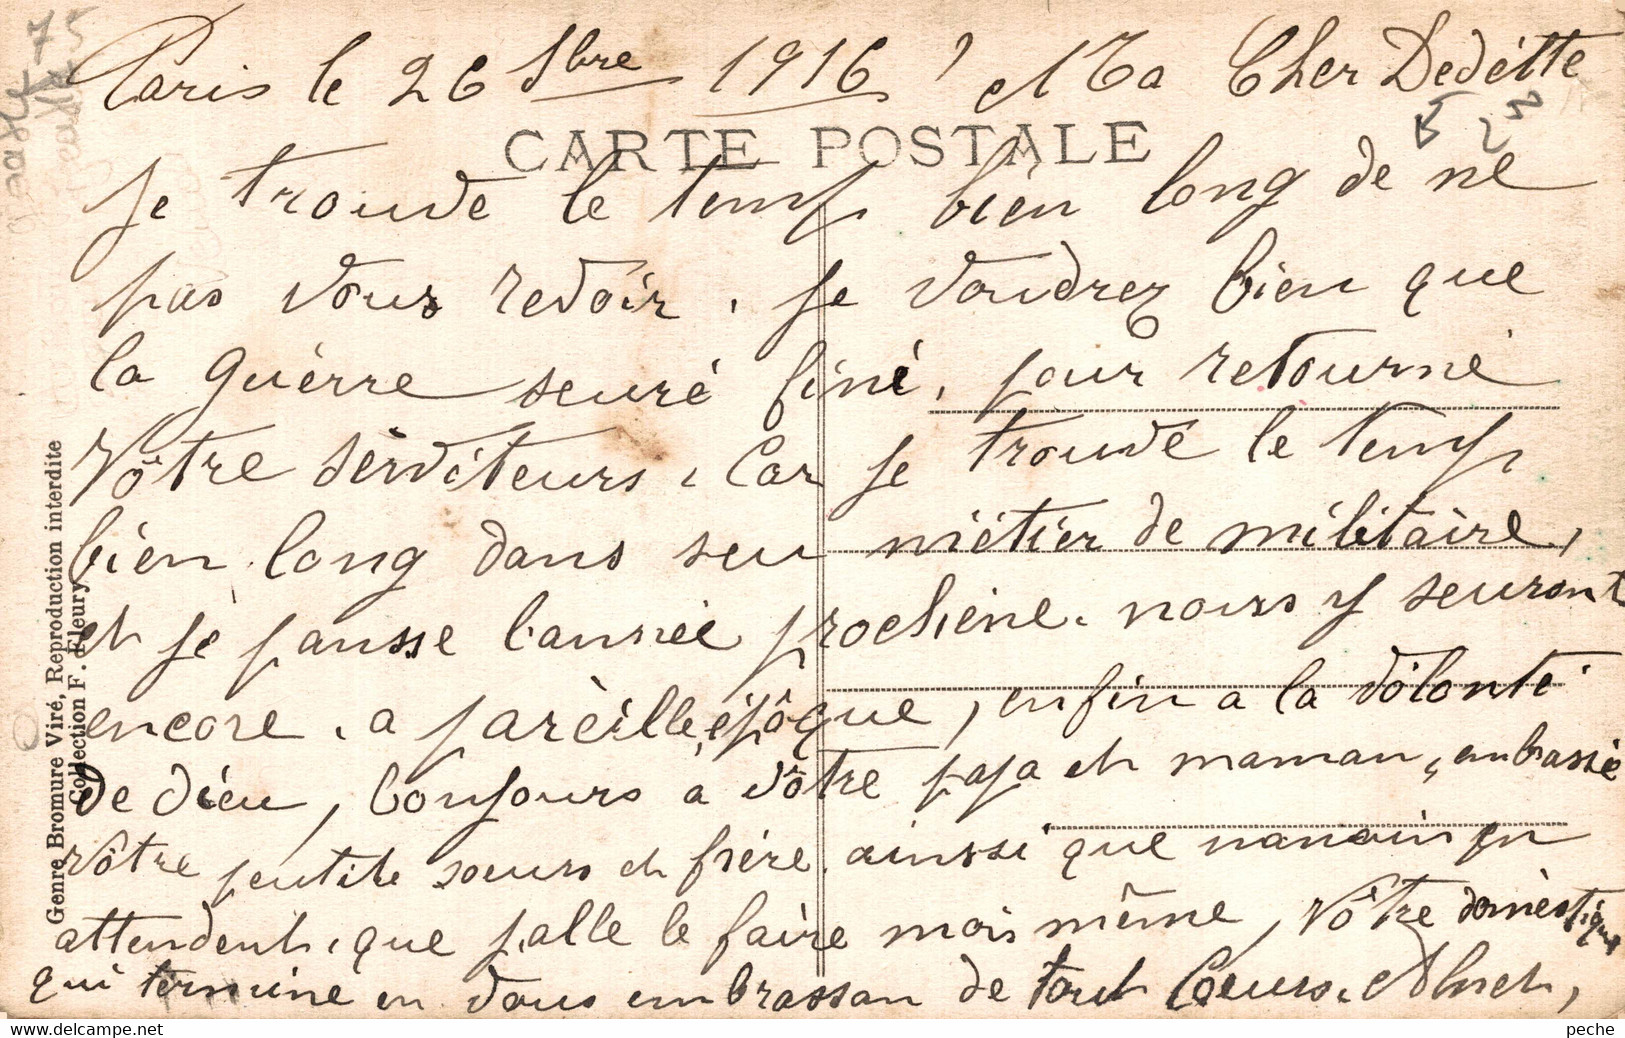 Paris le 26 1bre 1916, Ma Cher Dedétte
CARTE POSTALE
Je trouve le temp bien long de ne
pas vous revoir. Je voudrez bien que
la guèrre seuré finé, pour retourné
Vôtre sèrviteurs, Car je trouve le temp
bien long dans seu métier de militaire,
et je pansse l'année prochène. nous y seuront
encore, a parèille épôque, enfin a la volonté
de dieu, toujours a vôtre papa et maman, embrassé
vôtre peutite soeurs et frère, ainssi que
attendent, que j'alle le faire mois même, Vôtre domèstique
qui termine en vous embrassan de tout Coeurs. Albert,
Genre Bromure Viré, Reproduction interdite
Collection F. Fleury
peche